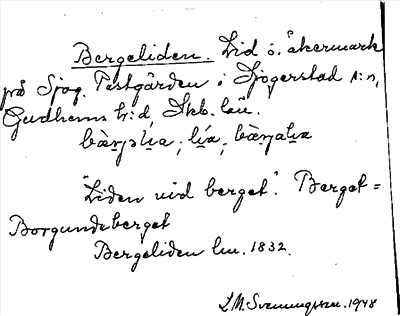 Bergeliden. Lid ö. åkermark
på Sjog. Pastgården i Sjögerstad s:n,
Gudhems h:d, Skb. län.
bæ̀rjəli̯a; li̯a; bæ̀rjəli̯a
"Liden vid berget". Berget =
Borgundeberget
Bergeliden lm. 1832.
L.M. Svenungsson. 1948